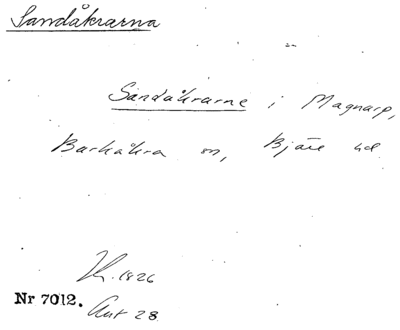 Sandåkrarna
Sandåkrarne i Magnarp,
Barkåkra sn, Bjäre hd
1826
Nr 7012. Akt 28